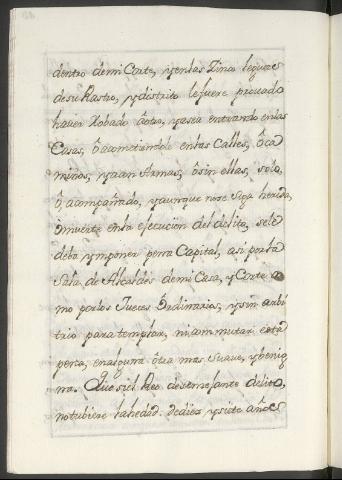 dentro demi Corte, y enlas Zinco leguas
desu Rastro, y distrito lefuere provado
haver Robado âotro, yasea entrando enlas
Casas, ô acometiendole enlas Calles, ô ca
minos, yacon Armas, ôsin ellas, solo,
ô acompañado, yaunque nose siga herida,
ômuerte enla ejecucion del delito, sele
deba ymponer pena Capital, asi porla
Sala de Alcaldes demi Casa, y Corte co
mo porlos Jueces Ordinarios, ysin arbi
trio para templar, niconmutar esta
pena, enalguna ôtra mas suave, ybenig
na. Que siel Reo desemejante delito,
notubiere lahedad dediez ysiete años